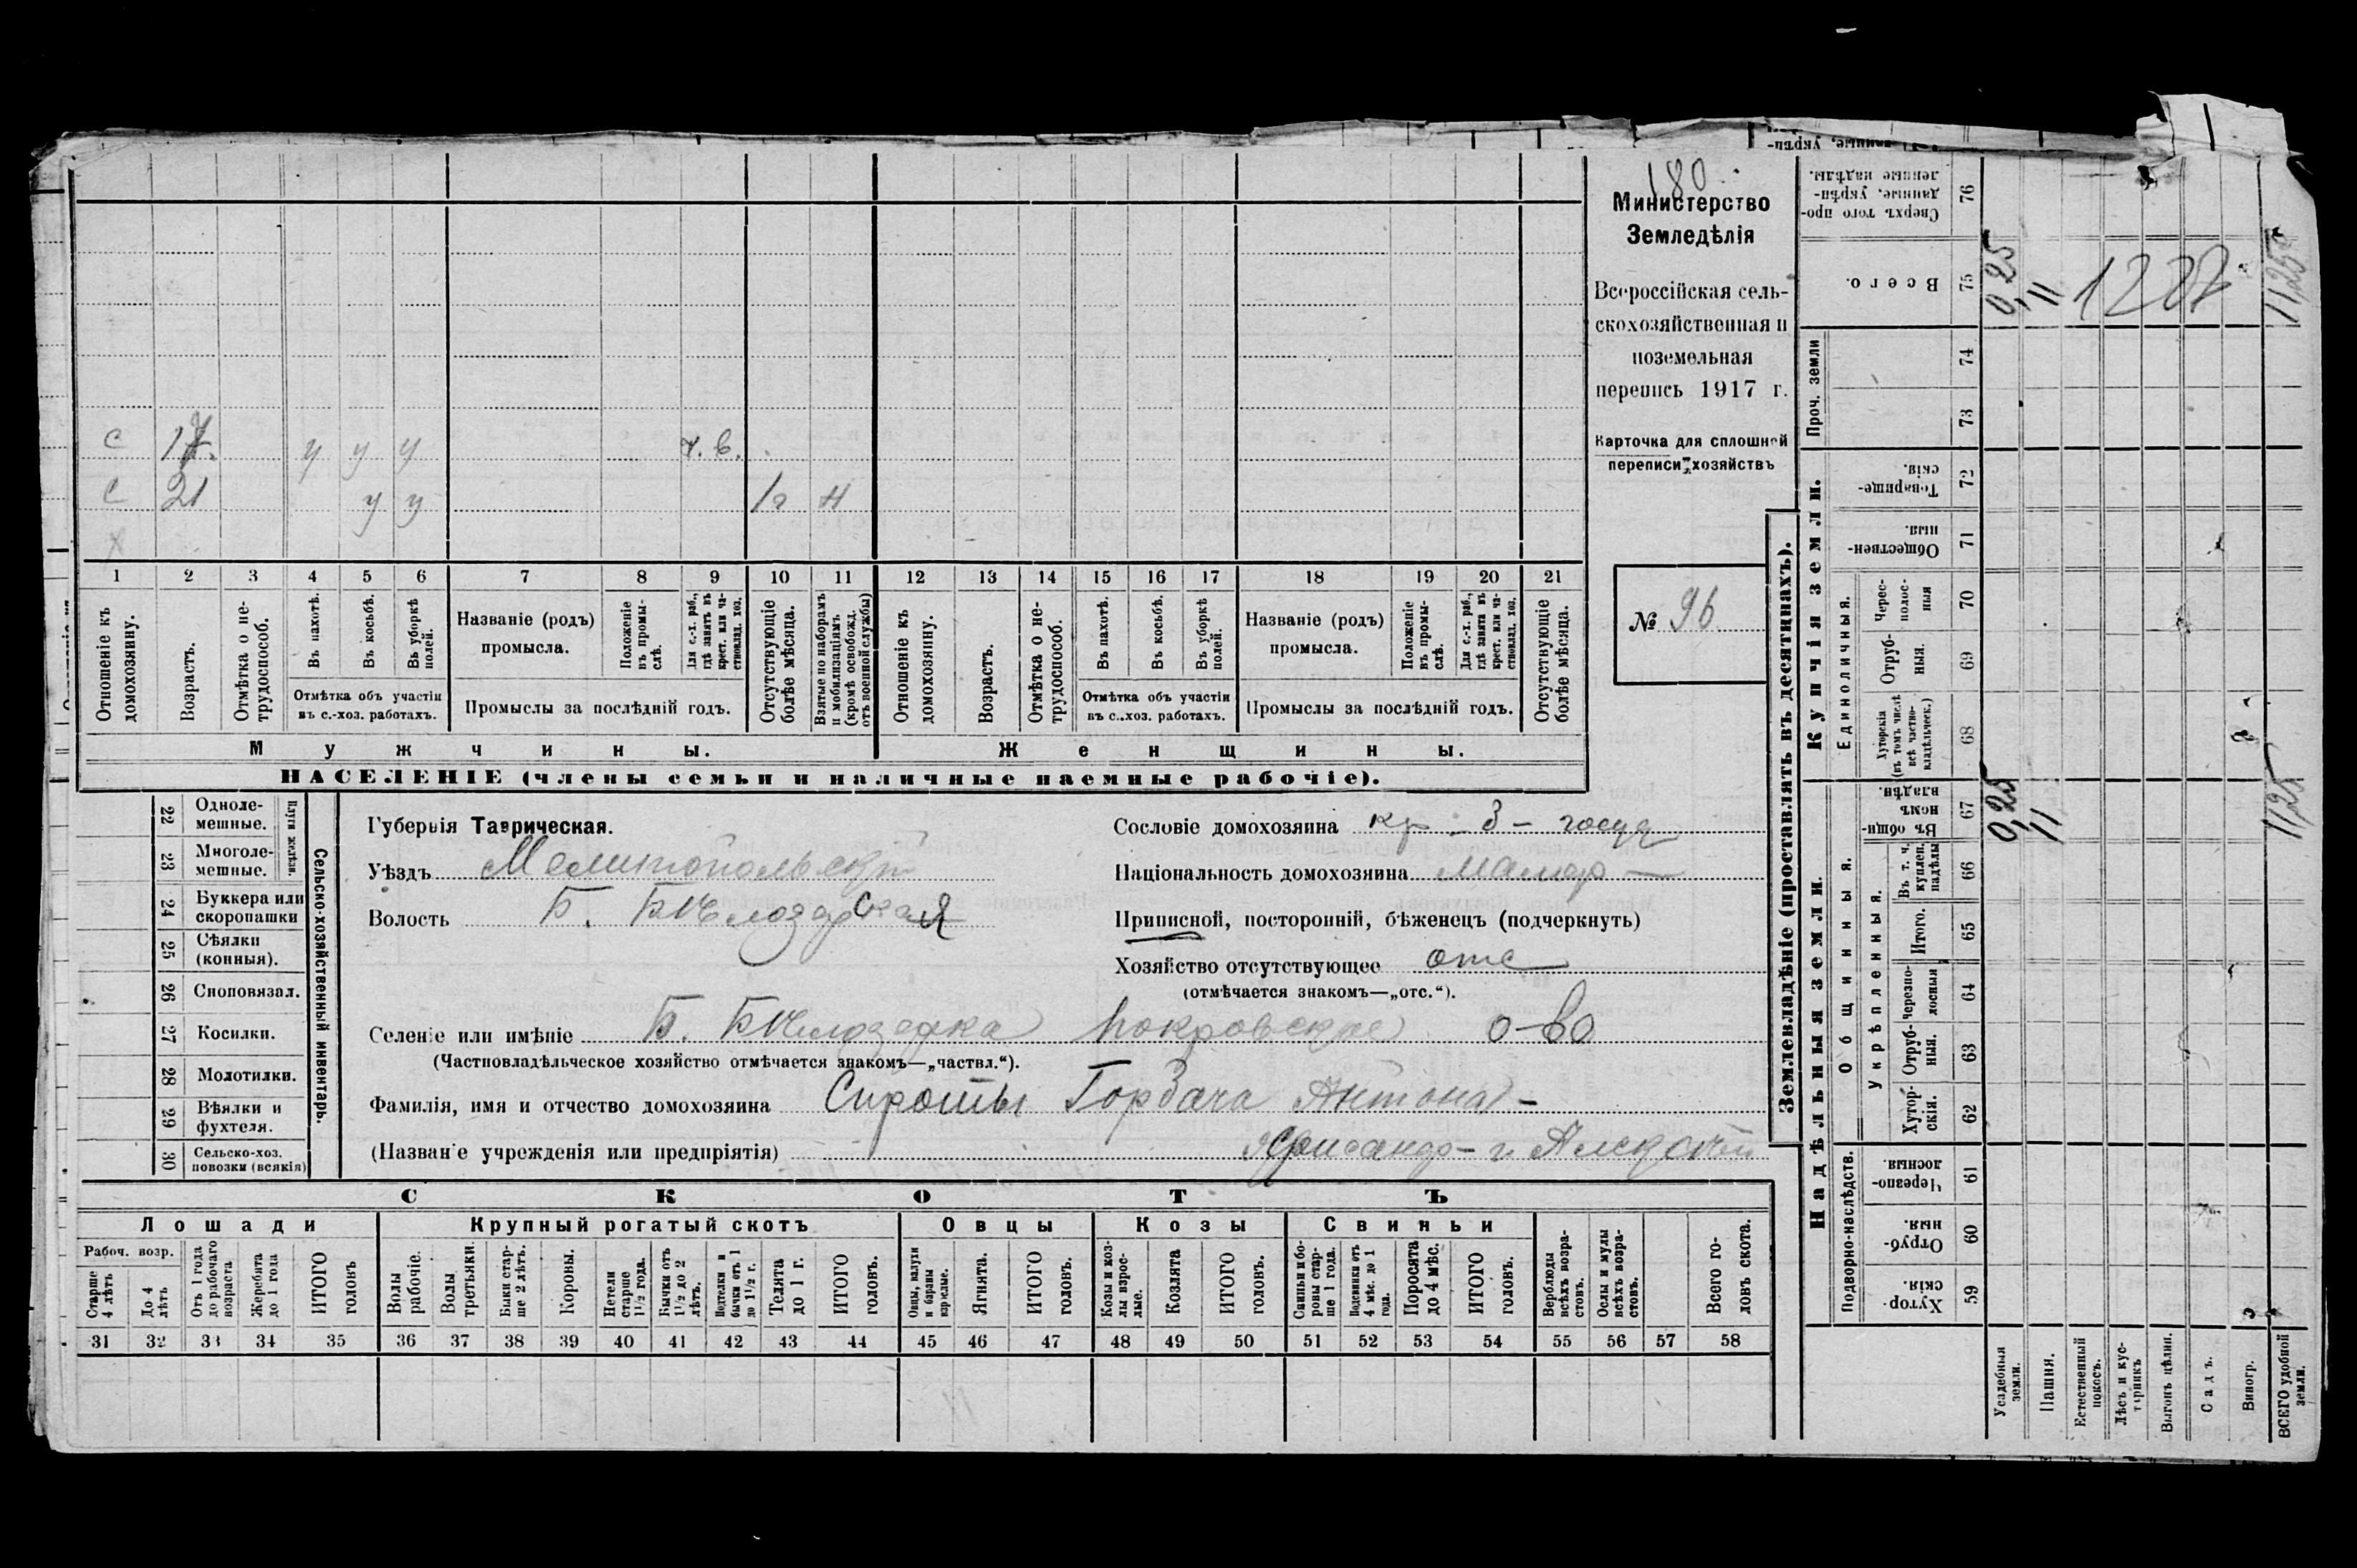 180
Министерство
Земледѣлія
Всероссійская сель-
скохозяйственная и
поземельная
перепись 1917 г.
Карточка для сплошной
переписи хозяйствъ
№ 96
с 17. у у у ч. в.
с 21 у у 1г н
х
1 2 3 4 5 6 7 8 9 10 11 12 13 14 15 16 17 18 19 20 21
Отношеніе къ домохозяину.
Возрастъ.
Отмѣтка о не-трудоспособ.
Въ пахотѣ.
Въ косьбѣ.
Въ уборкѣ полей.
Отмѣтка объ участіи
въ с.-хоз. работахъ.
Названіе (родъ)
промысла.
Положеніе въ промы-слѣ.
Для с.-х. раб., гдѣ занятъ въ крест. или ча-стновлад. хоз.
Промыслы за послѣдній годъ.
Отсутствующіе болѣе мѣсяца.
Взятые по наборамъ и мобилизаціямъ (кромѣ освобожд. отъ военной службы)
Отношеніе къ домохозяину.
Возрастъ.
Отмѣтка о не-трудоспособ.
Въ пахотѣ.
Въ косьбѣ.
Въ уборкѣ полей.
Отмѣтка объ участіи
въ с.-хоз. работахъ.
Названіе (родъ)
промысла.
Положеніе въ промы-слѣ.
Для с.-х. раб., гдѣ занята въ крест. или ча-стновлад. хоз.
Промыслы за послѣдній годъ.
Отсутствующіе болѣе мѣсяца.
Мужчины.
Женщины.
НАСЕЛЕНІЕ (члены семьи и наличные наемные рабочіе).
Сельско-хозяйственный инвентарь.
Плуги желѣзн.
22 Одноле-мешные.
23 Многоле-мешные.
24 Буккера или скоропашки
25 Сѣялки (конныя).
26 Сноповязал.
27 Косилки.
28 Молотилки.
29 Вѣялки и фухтеля.
30 Сельско-хоз. повозки (всякія)
Губернія Таврическая.
Уѣздъ Мелитопольскій
Волость Б. Бѣлозерская
Сословіе домохозяина кр - з - госуд
Національность домохозяина малор
Приписной, посторонній, бѣженецъ (подчеркнуть)
Хозяйство отсутствующее отс
(отмѣчается знакомъ—„отс.“).
Селеніе или имѣніе Б. Бѣлозерка Покровское о-во
(Частновладѣльческое хозяйство отмѣчается знакомъ—„частвл.“).
Фамилія, имя и отчество домохозяина Сироты Горбача Антона -
(Названіе учрежденія или предпріятія)
СКОТЪ
Лошади
Крупный рогатый скотъ
Овцы
Козы
Свиньи
Рабоч. возр.
Старше 4 лѣтъ
До 4 лѣтъ
Отъ 1 года до рабочаго возраста
Жеребята до 1 года
ИТОГО головъ
Волы рабочіе.
Волы третьяки.
Быки стар-ше 2 лѣтъ.
Коровы.
Нетели старше 1½ года.
Бычки отъ 1½ до 2 лѣтъ.
Подтелки и бычки отъ 1 до 1½ г.
Телята до 1 г.
ИТОГО головъ.
Овцы, валухи и бараны взрослые.
Ягнята.
ИТОГО головъ.
Козы и коз-лы взрос-лые.
Козлята
ИТОГО головъ.
Свиньи и бо-ровы стар-ше 1 года.
Подсвинки отъ 4 мѣс. до 1 года.
Поросята до 4 мѣс.
ИТОГО головъ.
Верблюды всѣхъ возра-стовъ.
Ослы и мулы всѣхъ возра-стовъ.
Всего го-ловъ скота.
31 32 33 34 35 36 37 38 39 40 41 42 43 44 45 46 47 48 49 50 51 52 53 54 55 56 57 58
Землевладѣніе (проставлять въ десятинахъ).
Надѣльныя земли.
Купчія земли.
Проч. земли
Подворно-наслѣдств.
Общинныя.
Укрѣпленныя.
Единоличныя.
Сверхъ того про-данные, укрѣп-ленные надѣлы. 76
Всего. 75 0,25 11 1227 11,25
74
73
Товарище-скія. 72
Обществен-ныя. 71
Черес-полос-ныя 70
Отруб-ныя. 69
Хуторскія (въ томъ числѣ всѣ частно-владѣльческ.) 68
Въ общин-номъ владѣн. 67 0,25 11 11,25
Въ т. ч. куплен. надѣлы 66
Итого. 65
Черезпо-лосныя 64
Отруб-ныя. 63
Хутор-скія. 62
Черезпо-лосныя. 61
Отруб-ныя. 60
Хутор-скія. 59
Усадебныя земли.
Пашня.
Естественный покосъ.
Лѣсъ и кус-тарникъ
Выгонъ цѣлин.
Садъ.
Виногр.
ВСЕГО удобной земли.